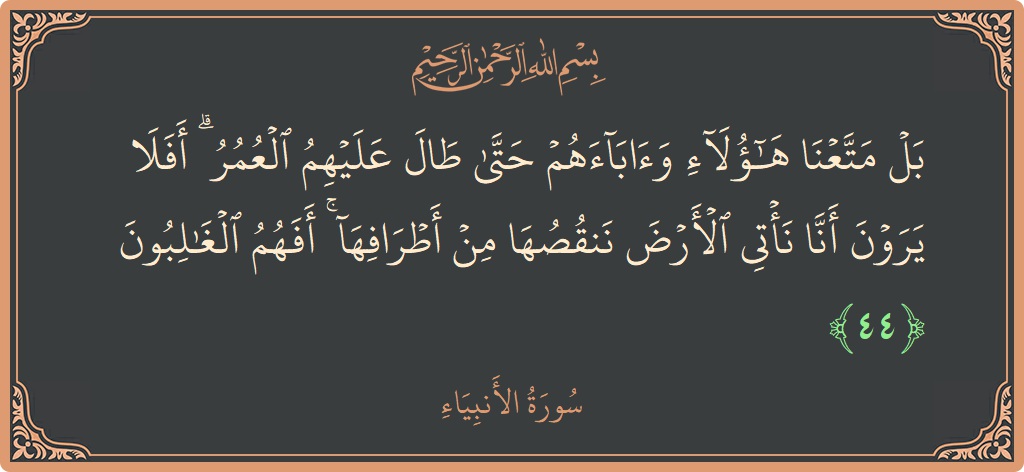 بِسْمِ اللهِ الرَّحْمٰنِ الرَّحِيْمِ
بَلۡ مَتَّعۡنَا هَـٰٓؤُلَآءِ وَءَابَآءَهُمۡ حَتَّىٰ طَالَ عَلَيۡهِمُ ٱلۡعُمُرُۗ أَفَلَا
يَرَوۡنَ أَنَّا نَأۡتِي ٱلۡأَرۡضَ نَنقُصُهَا مِنۡ أَطۡرَافِهَآۚ أَفَهُمُ ٱلۡغَٰلِبُونَ
﴿٤٤﴾
سُورَةُ الأَنبِيَاءِ